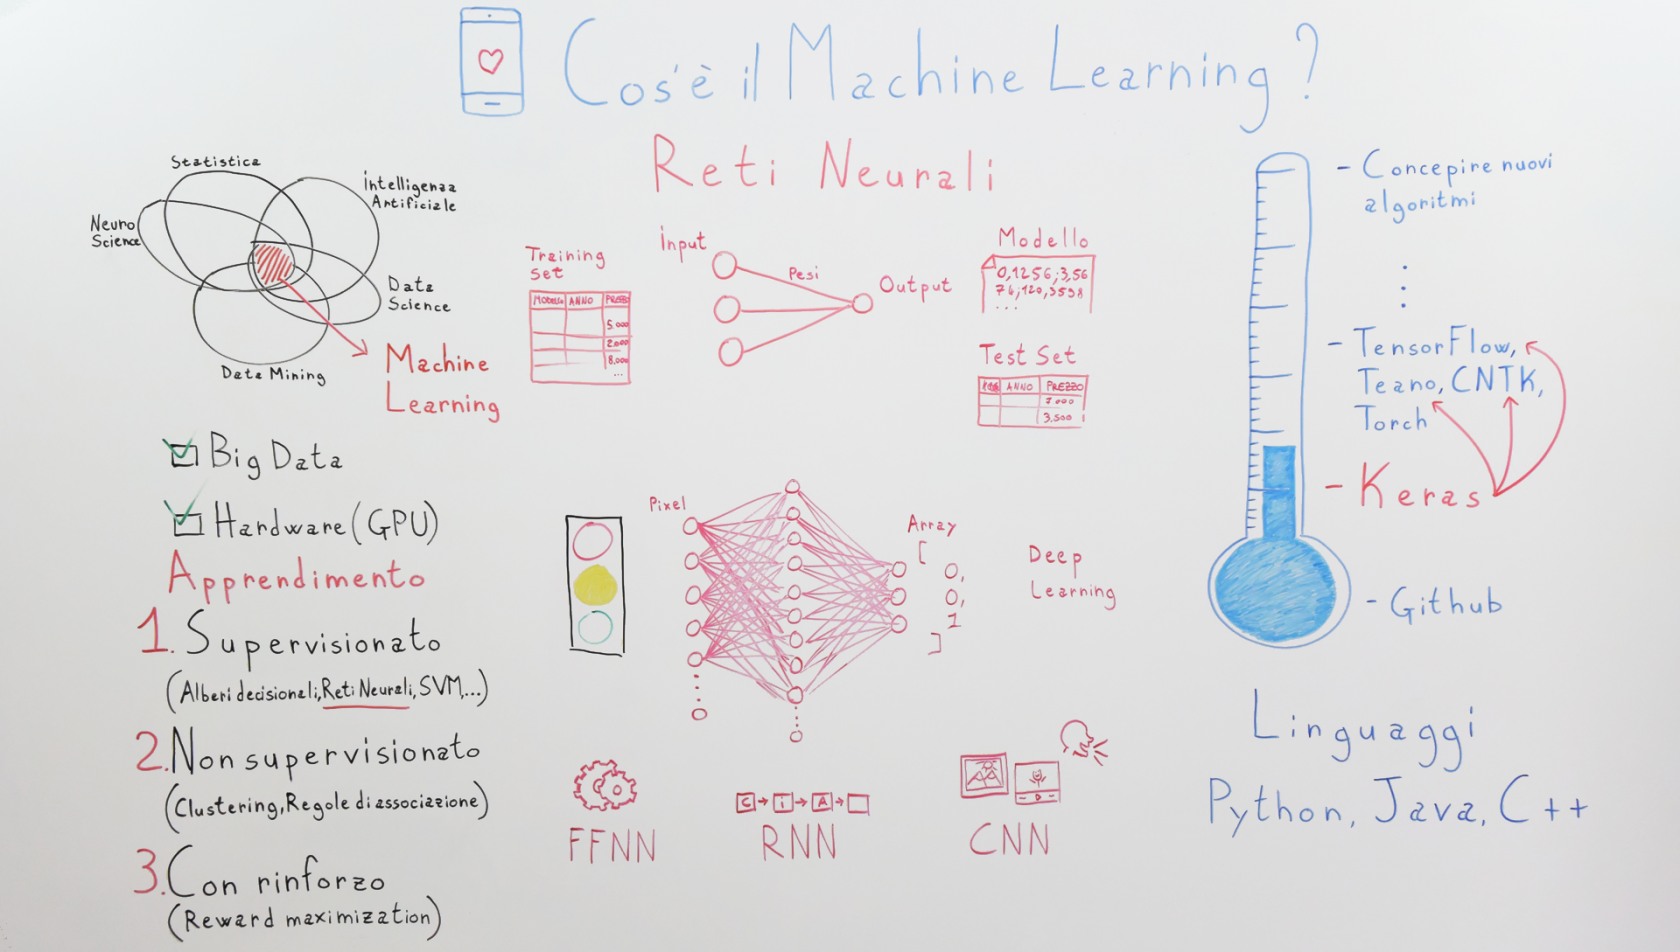 Cos'è il Machine Learning?
Statistica
Intelligenza
Artificiale
Neuro
Science
Data
Science
Data Mining
Machine
Learning
Big Data
Hardware (GPU)
Apprendimento
1. Supervisionato
(Alberi decisionali, Reti Neurali, SVM,...)
2. Non supervisionato
(Clustering, Regole di associazione)
3. Con rinforzo
(Reward maximization)
Reti Neurali
Training
Set
Modello ANNO PREZZO
5.000
2.000
8.000
...
Input
Pesi
Output
Modello
0,1256;3,56
74;120,3598
...
Test Set
ANNO PREZZO
7.000
3.500
Pixel
Array
[
0,
0,
1
]
Deep
Learning
FFNN
C → i → A →
RNN
CNN
- Concepire nuovi
algoritmi
- TensorFlow,
Teano, CNTK,
Torch
- Keras
- Github
Linguaggi
Python, Java, C++